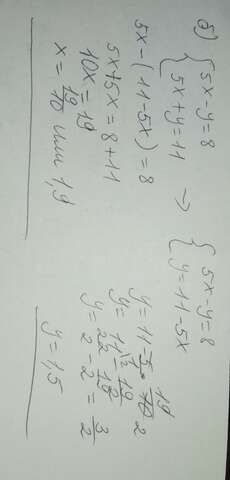 б) { 5x-y=8
5x+y=11 → { 5x-y=8
y=11-5x
5x-(11-5x)=8
5x+5x=8+11
10x=19
x=19/10 или 1,9
y=11-5·19/10
y=11/1-19/2
y=22/2-19/2=3/2
y=1,5